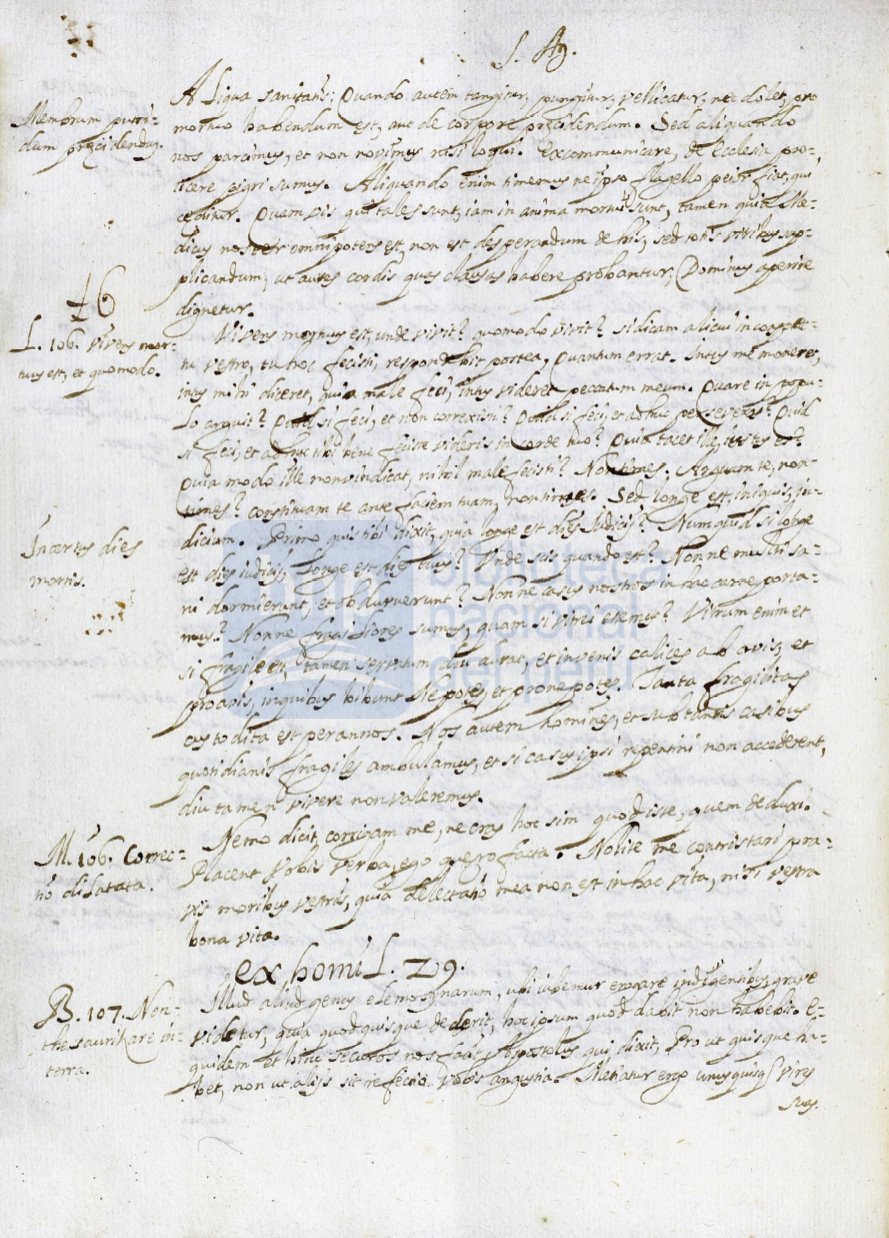 S. Aug.
Aliqua sanitatis; Quando autem tangitur, pungitur, vellicatur, nec dolet, pro
Membrum putri-
dum præcidendum.
mortuo habendum est, aut de corpore præcidendum. Sed aliquando
nos parcimus, et non novimus nisi loqui. excommunicare, de Ecclesia pro-
iicere pigri sumus. Aliquando enim timemus ne ipso flagello peior fiat, qui
cæditur. Quamvis qui tales sunt, iam in anima mortui sunt, tamen quia Me-
dicus noster omnipotens est, non est desperandum de his, sed totis viribus sup-
plicandum, ut aures cordis quas clausas habere probantur, Dominus aperire
dignetur.
46
L. 106. vivens mor-
tuus est, et quomodo.
Vivens mortuus est, unde vivit? quomodo vivit? si dicam alicui in conspec-
tu vestro, tu hoc fecisti, respondebit postea, Quantum errat. Intus me moneret,
intus mihi diceret, quia male feci, intus videret peccatum meum. Quare in popu-
lo arguit? Quid si feci, et non correxisti? Quid si feci, et adhuc perseveras? Quid
si feci, et adhuc tibi bene fecisse videris in corde tuo? Quia tacet ille, iustus est?
Quia modo ille non vindicat, nihil male fecisti? Non times. Arguam te, non
times? constituam te ante faciem tuam, non times. Sed longe est, inquis, iu-
dicium. Primo quis tibi dixit, quia longe est dies Iudicij? Numquid si longe
Incertus dies
mortis.
est dies iudicij, longe est dies tuus? Unde scis quando est? Nonne multi sa-
ni dormierunt, et obduruerunt? Nonne casus nostros in hac carne porta-
mus? Nonne fragiliores sumus, quam si vitrei essemus? Vitrum enim et
si fragile est, tamen servatum diu durat, et invenis calices ab avis, et
proavis, in quibus bibunt Nepotes, et pronepotes. Tanta fragilitas
custodita est per annos. Nos autem homines, et sub tantis casibus
quotidianis fragiles ambulamus, et si casus ipsi repentini non accederent,
diu tamen vivere non valeremus.
M. 106. Correc-
tio dilatata.
Nemo dicit, corrigam me, ne cras hoc sim quod iste, quem deduxi.
Placent vobis verba, ego quero facta. Nolite me contristari pra-
vis moribus vestris, quia delectatio mea non est in hac vita, nisi vestra
bona vita.
ex homil. 29.
B. 107. Non
thesaurizare in
terra.
Illud aliud genus elemosynarum, ubi iubemur erogare indigentibus, grave
videtur, quia quod quisque dederit, hoc ipsum quod dabit non habebit. E-
quidem et hinc securos nos facit Apostolus qui dixit, Prout quisque ha-
bet, non ut alijs sit refectio vobis angustia. Metiatur ergo unusquisq; vires
suas.
biblioteca
nacional
del perú